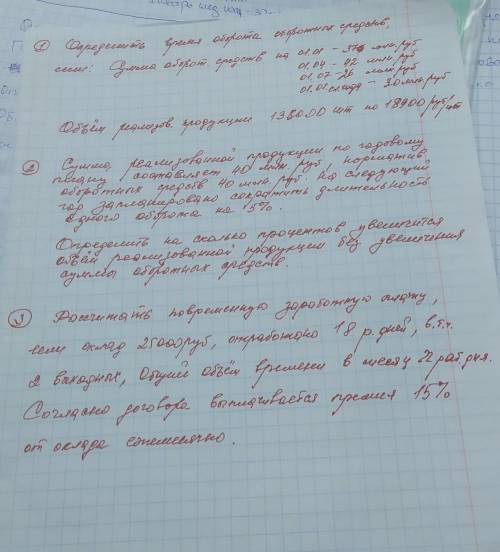 январь
1 Определить время оборота оборотных средств,
если: Сумма оборот средств на 01.01 - 37 млн.руб
01.04 - 42 млн.руб
01.07 - 26 млн.руб
01.01 след - 30 млн.руб
Объём реализов. продукции 138000 шт по 18900 руб/шт
2 Сумма, реализованной продукции по годовому
плану составляет 40 млн. руб, норматив
оборотных средств 40 млн. руб. На следующий
год запланировано сократить длительность
одного оборота на 15%.
Определить на сколько процентов увеличится
объём реализованной продукции без увеличения
суммы оборотных средств.
3 Рассчитать повременную заработную плату,
если оклад 25000руб, отработано 18 р. дней, в.т.ч.
2 выходных, Общий объём времени в месяц 22 раб.дня.
Согласно договора выплачивается премия 15%
от оклада ежемесячно.